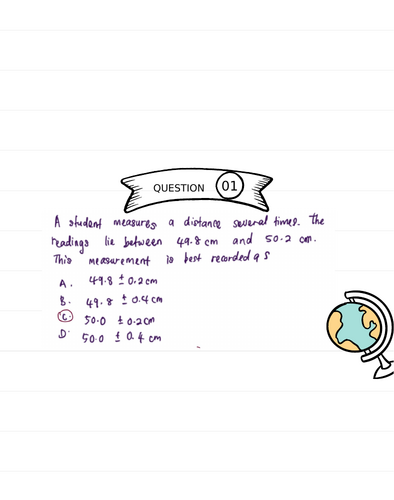 QUESTION 01
A student measures a distance several times. The
readings lie between 49.8 cm and 50.2 cm.
This measurement is best recorded as
A. 49.8 ± 0.2 cm
B. 49.8 ± 0.4 cm
C. 50.0 ± 0.2 cm
D. 50.0 ± 0.4 cm